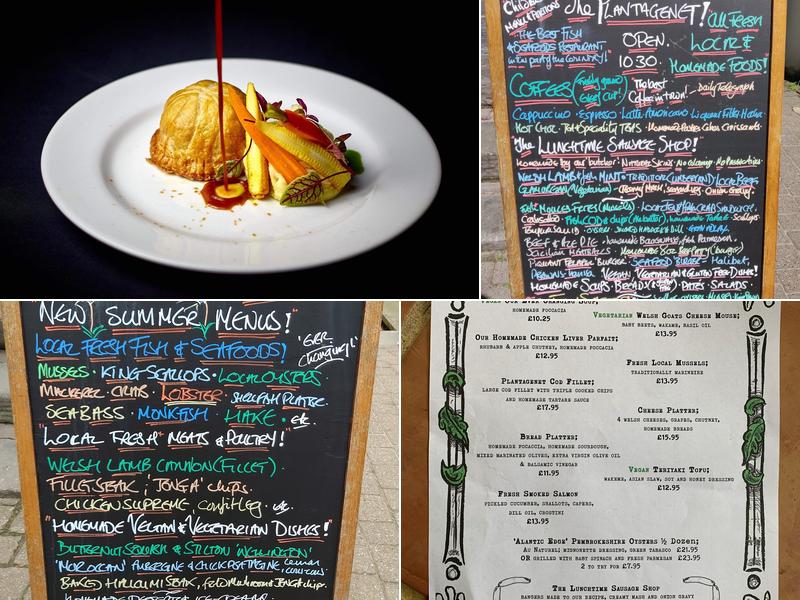 The PLANTAGENET!
All FRESH
"THE BEST FISH
& SEAFOODS RESTAURANT
in this part of the COUNTRY!"
OPEN.
10:30.
LOCAL &
HOMEMADE FOODS!
COFFEES
"The best
Coffee in town!" - Daily Telegraph
Cappuccino · Espresso · Latte · Americano · Liqueur Filter Mocha
HOT CHOC ·
"The LUNCHTIME SAUSAGE SHOP!
HOMEMADE by our butcher · NATURAL SKINS · No coloring · No Preservatives
WELSH LAMB & MINT · TRADITIONAL CUMBERLAND · LOCAL BEEF &
GLAMORGAN (Vegetarian) - Creamy MASH, seasonal veg · Onion Gravy.
BEEF & ALE PIE ·
SICILIAN MEATBALLS ·
SEAFOOD BURGER - Halibut,
VEGAN VEGETARIAN & GLUTEN FREE DISHES!
HOMEMADE SOUPS · BREADS · PATES · SALADS ·
"NEW SUMMER MENUS!"
LOCAL FRESH FISH & SEAFOODS!
'EVER
changing!'
MUSSELS · KING SCALLOPS · LOCAL OYSTERS
MACKEREL · CRAB · LOBSTER · SHELLFISH PLATTER.
SEA BASS · MONKFISH · HAKE · etc.
"LOCAL FRESH MEATS & POULTRY!
WELSH LAMB CANNON (FILLET) ·
FILLET STEAK, 'JENGA' chips.
CHICKEN SUPREME, confit leg · etc.
"HOMEMADE VEGAN & VEGETARIAN DISHES!
BUTTERNUT SQUASH & STILTON 'WELLINGTON'
'MOROCCAN' AUBERGINE & CHICKPEA TAGINE Lemon couscous'
BAKED HALLOUMI STEAK, Portobello Mushroom JENGA chips.
HOMEMADE DESSERTS ICE CREAMS
HOMEMADE FOCCACIA
£10.25
Our Homemade Chicken Liver Parfait;
RHUBARB & APPLE CHUTNEY, HOMEMADE FOCCACIA
£12.95
Plantagenet Cod Fillet;
LARGE COD FILLET WITH TRIPLE COOKED CHIPS
AND HOMEMADE TARTARE SAUCE
£17.95
Bread Platter;
HOMEMADE FOCCACIA, HOMEMADE SOURDOUGH,
MIXED MARINATED OLIVES, EXTRA VIRGIN OLIVE OIL
& BALSAMIC VINEGAR
£11.95
Fresh Smoked Salmon
PICKLED CUCUMBER, SHALLOTS, CAPERS,
DILL OIL, CROSTINI
£13.95
Vegetarian Welsh Goats Cheese Mouse;
BABY BEETS, WAKAME, BASIL OIL
£13.95
Fresh Local Mussels;
TRADITIONALLY MARINIERE
£13.95
Cheese Platter;
4 WELSH CHEESES, GRAPES, CHUTNEY,
HOMEMADE BREADS
£15.95
Vegan Teriyaki Tofu;
WAKEME, ASIAN SLAW, SOY AND HONEY DRESSING
£12.95
'Alantic Edge' Pembrokeshire Oysters ½ Dozen;
AU NATUREL; MIGNONETTE DRESSING, GREEN TABASCO £21.95
OR GRILLED WITH BABY SPINACH AND FRESH PARMESAN £23.95
2 TO TRY FOR £7.95
The Lunchtime Sausage Shop
BANGERS MADE TO OUR RECIPE, CREAMY MASH AND ONION GRAVY